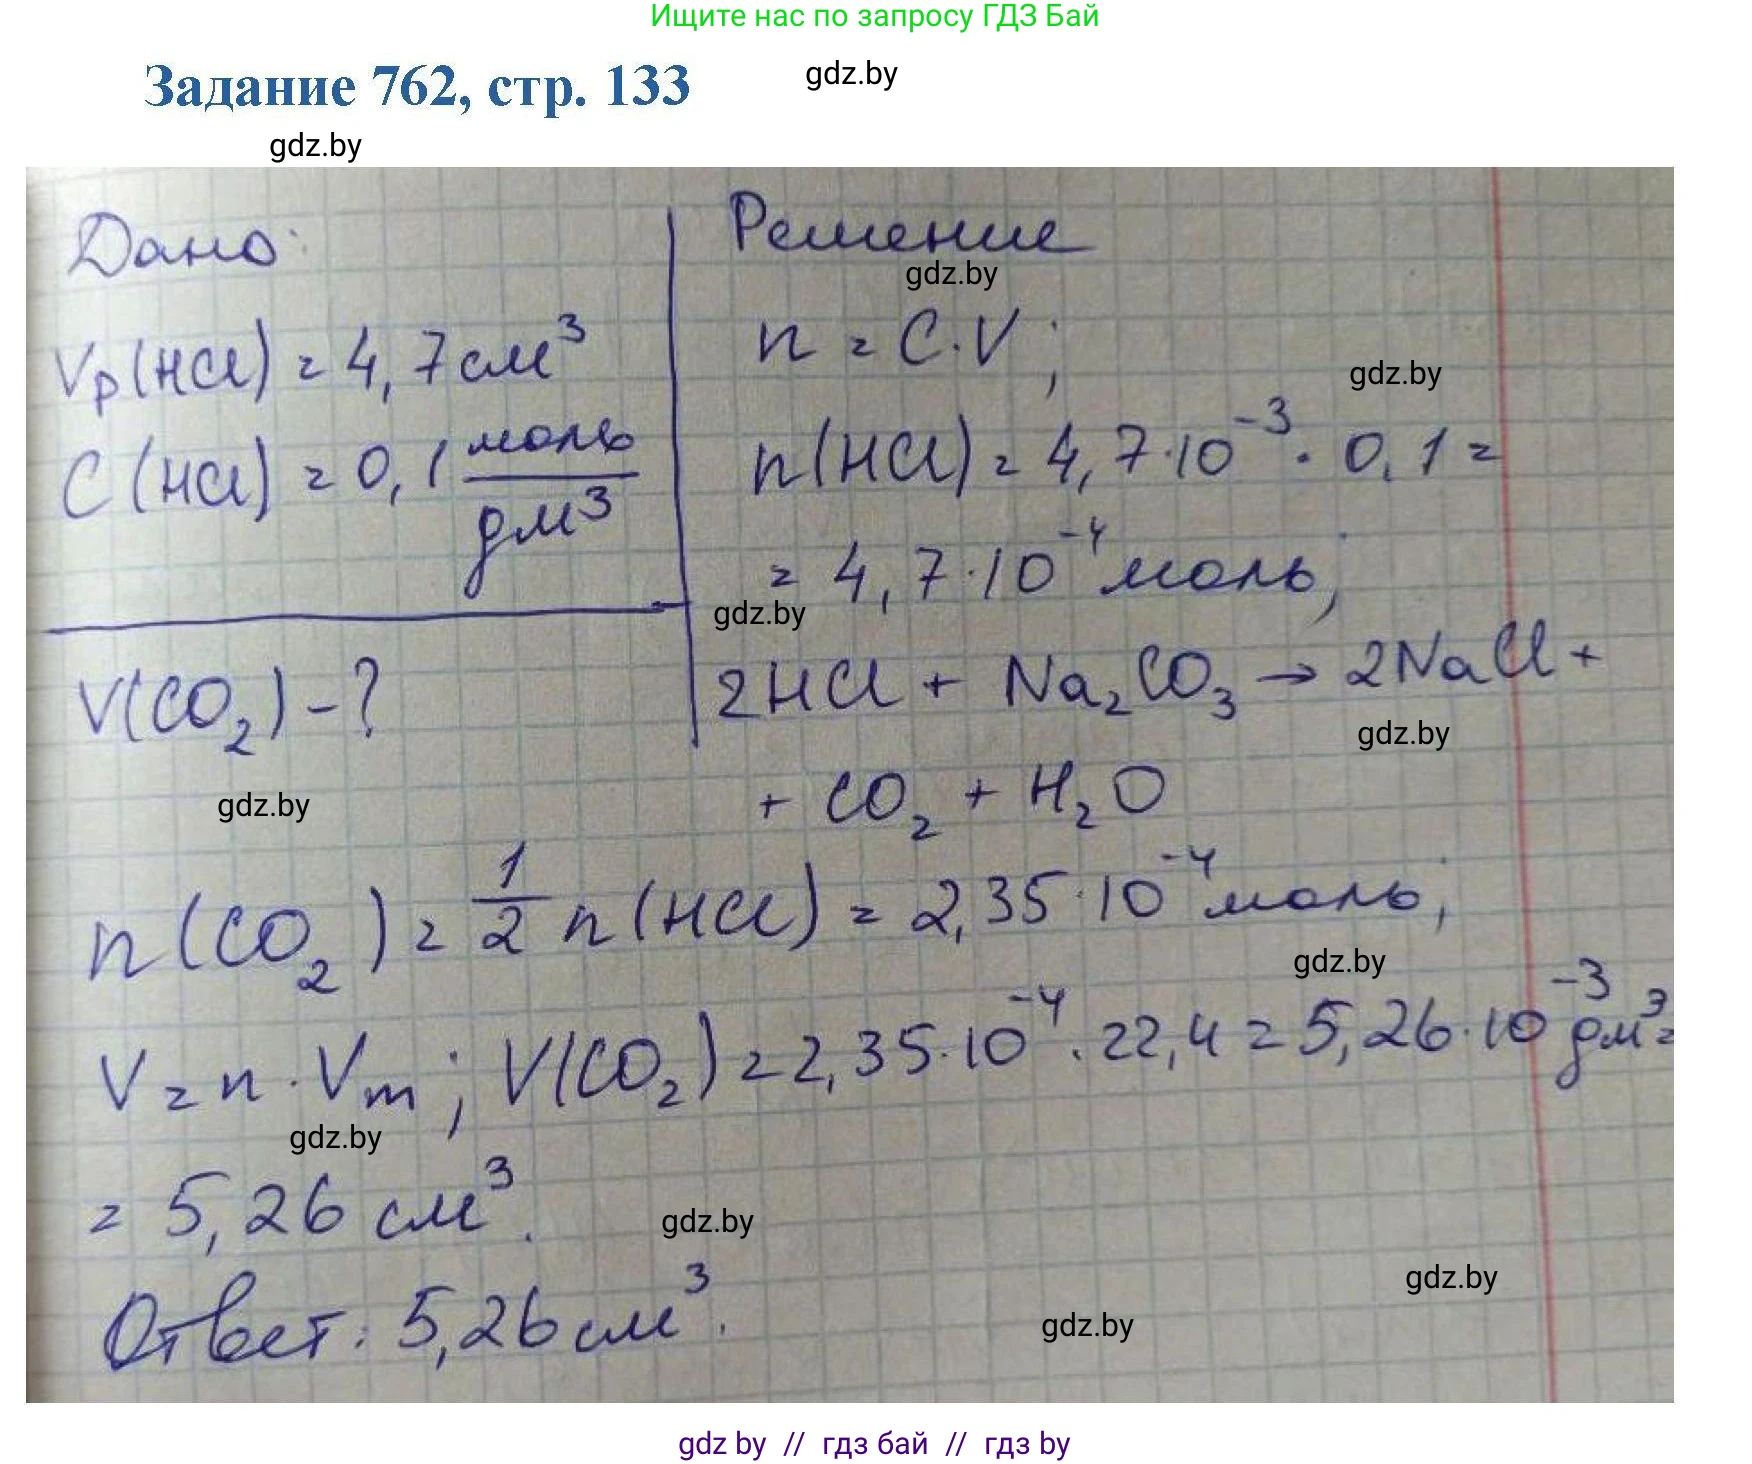 Ищите нас по запросу ГДЗ Бай
Задание 762, стр. 133
gdz.by
gdz.by
Дано:
Vр(HCl) = 4,7 см³
C(HCl) = 0,1 моль/дм³
V(CO₂) - ?
Решение
gdz.by
n = C·V;
gdz.by
n(HCl) = 4,7·10⁻³ · 0,1 =
= 4,7·10⁻⁴ моль;
gdz.by
2HCl + Na₂CO₃ → 2NaCl +
gdz.by
+ CO₂ + H₂O
gdz.by
n(CO₂) = 1/2 n(HCl) = 2,35·10⁻⁴ моль;
gdz.by
V = n · Vm; V(CO₂) = 2,35·10⁻⁴ · 22,4 = 5,26·10⁻³ дм³ =
gdz.by
= 5,26 см³.
gdz.by
gdz.by
Ответ: 5,26 см³.
gdz.by
gdz by // гдз бай // гдз by